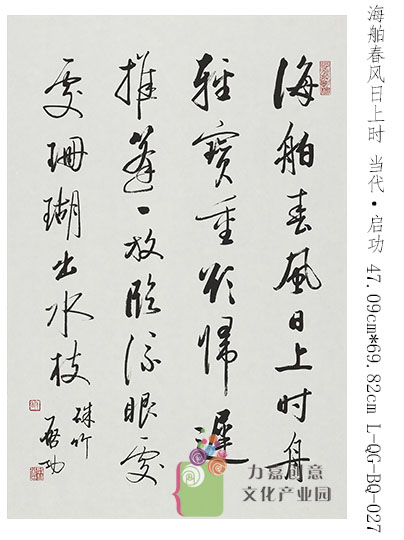 海舶春風日上时舟
輕寶重歸遲
推篷一放臨流眼處
處珊瑚出水枝
硃竹
啓功
海舶春风日上时 当代·启功 47.09cm*69.82cm L-QG-BQ-027
力嘉创意
文化产业园